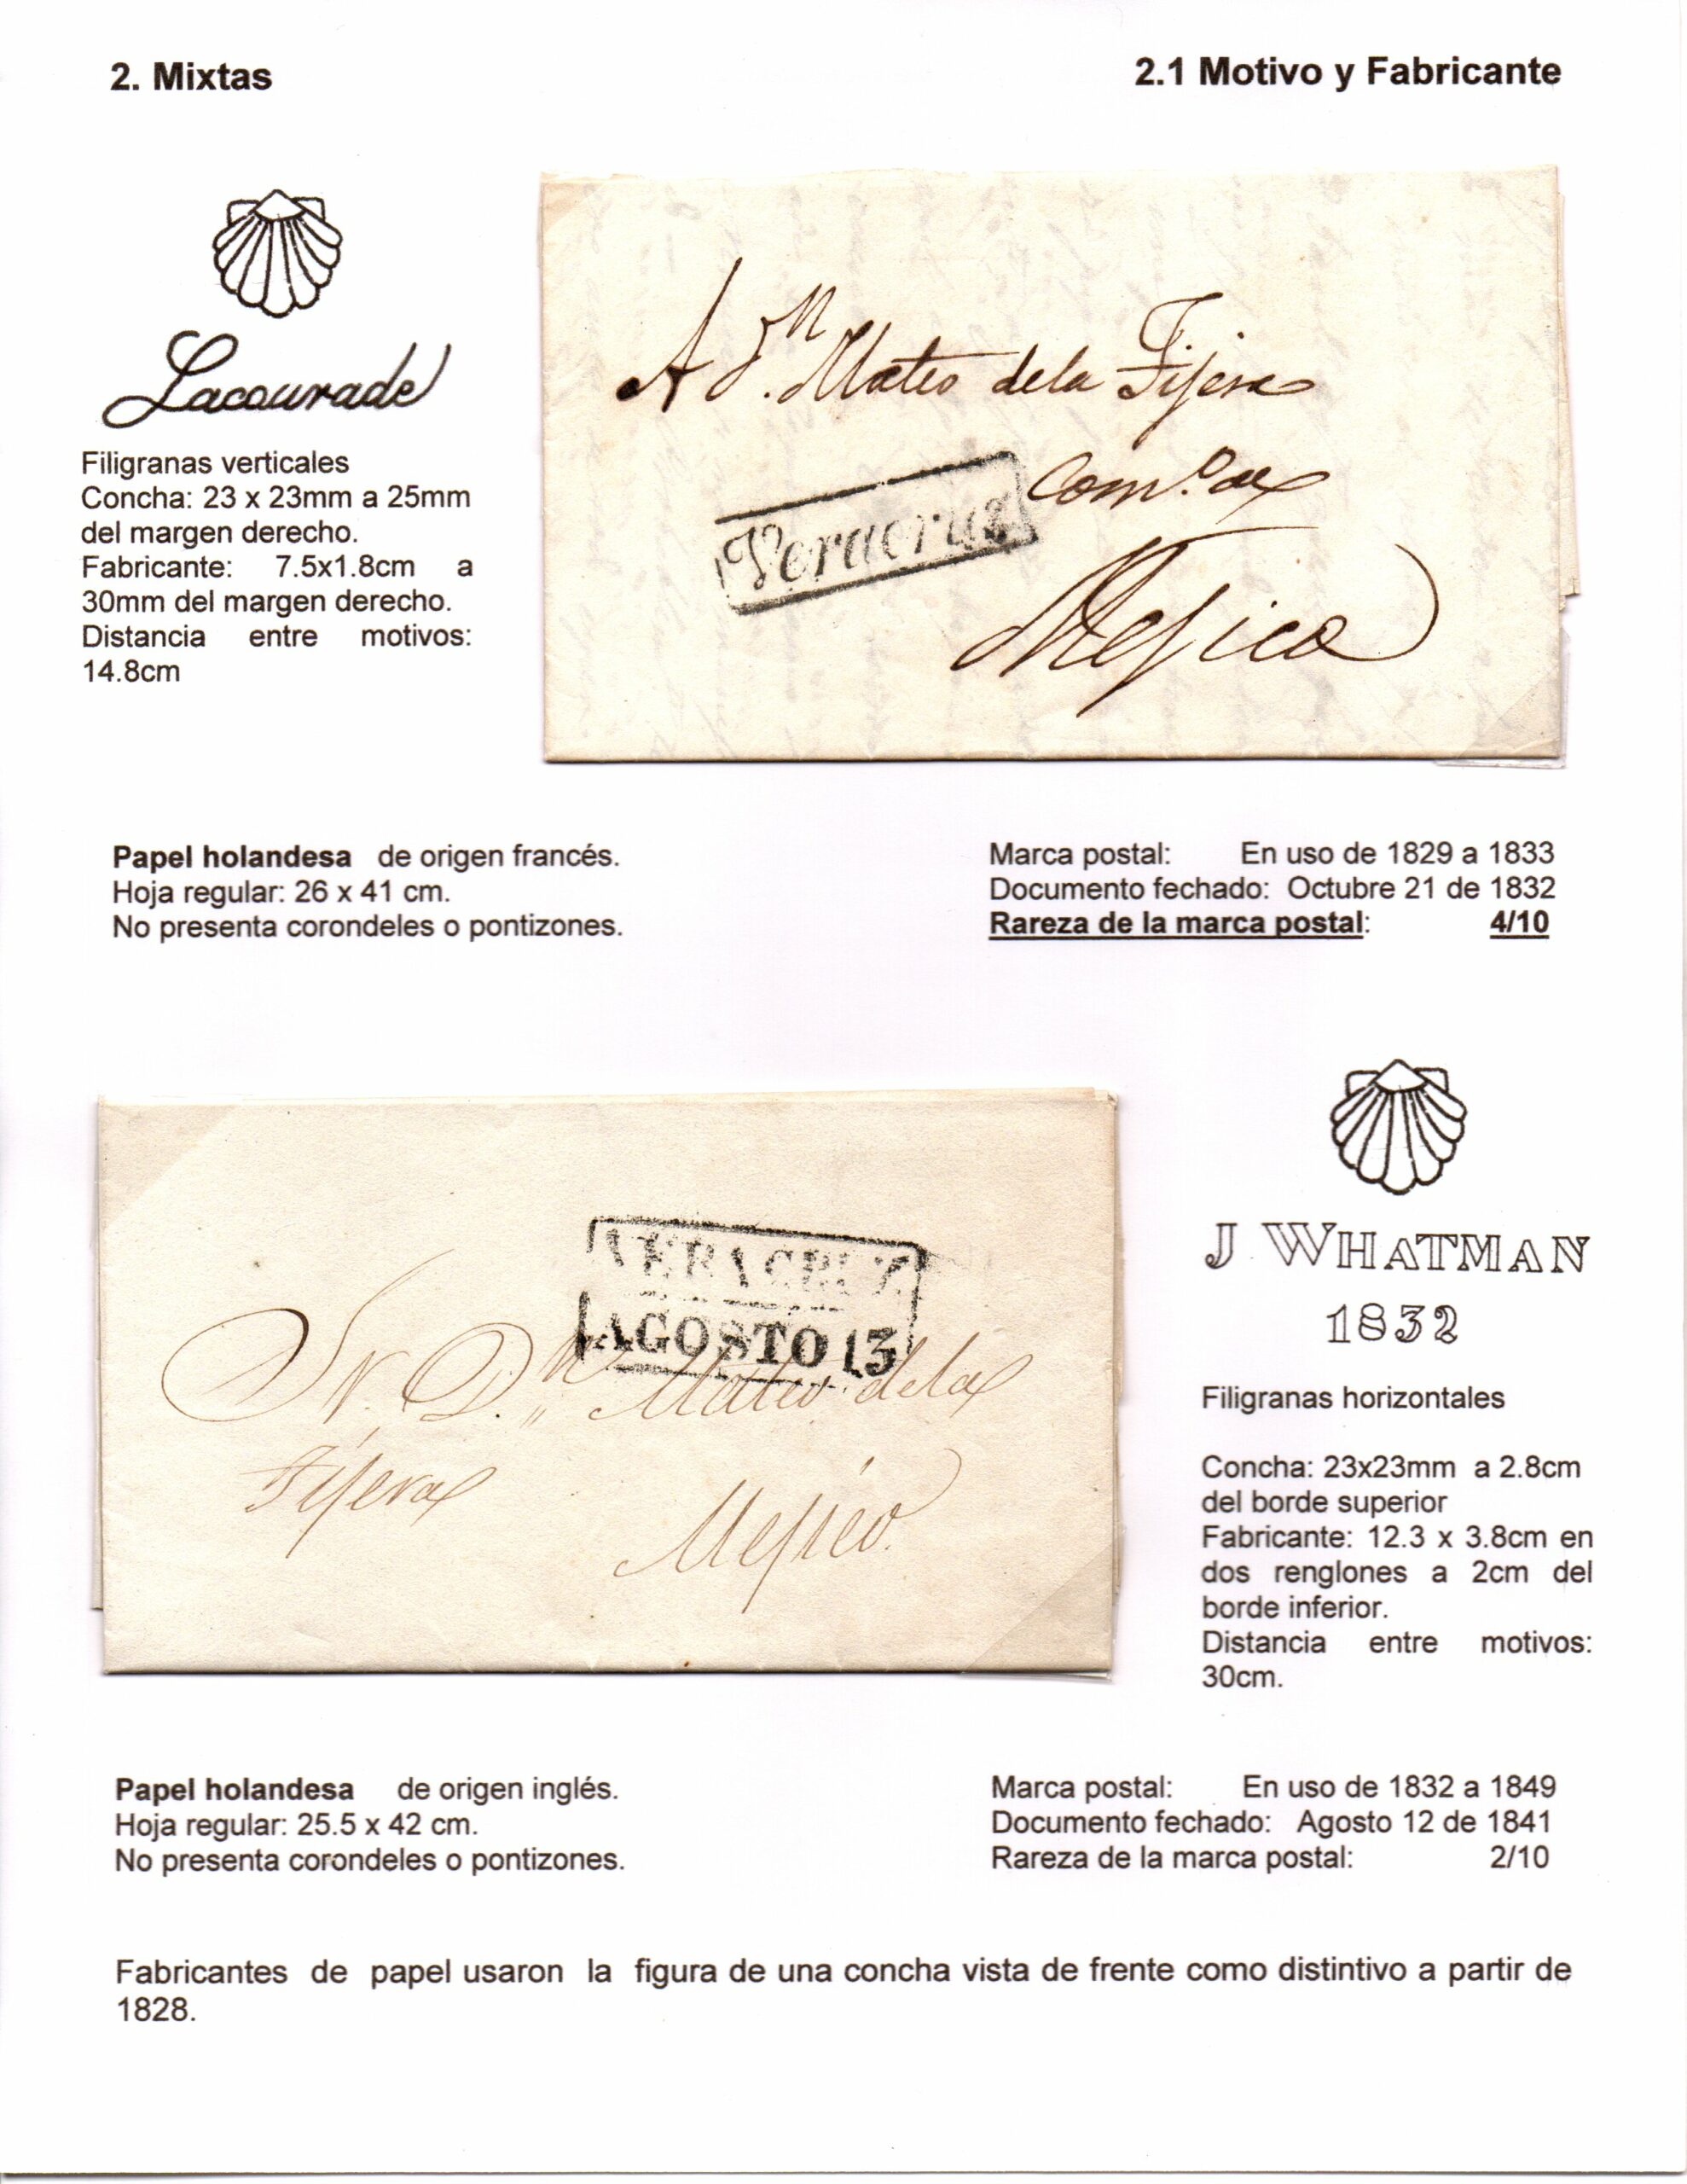 2. Mixtas
2.1 Motivo y Fabricante
Lacourade
Filigranas verticales
Concha: 23 x 23mm a 25mm
del margen derecho.
Fabricante: 7.5x1.8cm a
30mm del margen derecho.
Distancia entre motivos:
14.8cm
A Dn. Mateo dela Tijera
Como. de
Mejico
Veracruz
Papel holandesa de origen francés.
Hoja regular: 26 x 41 cm.
No presenta corondeles o pontizones.
Marca postal: En uso de 1829 a 1833
Documento fechado: Octubre 21 de 1832
Rareza de la marca postal: 4/10
VERACRUZ
AGOSTO 13
Sr. Dn. Mateo dela
Tijera
Mejico.
J WHATMAN
1832
Filigranas horizontales
Concha: 23x23mm a 2.8cm
del borde superior
Fabricante: 12.3 x 3.8cm en
dos renglones a 2cm del
borde inferior.
Distancia entre motivos:
30cm.
Papel holandesa de origen inglés.
Hoja regular: 25.5 x 42 cm.
No presenta corondeles o pontizones.
Marca postal: En uso de 1832 a 1849
Documento fechado: Agosto 12 de 1841
Rareza de la marca postal: 2/10
Fabricantes de papel usaron la figura de una concha vista de frente como distintivo a partir de
1828.